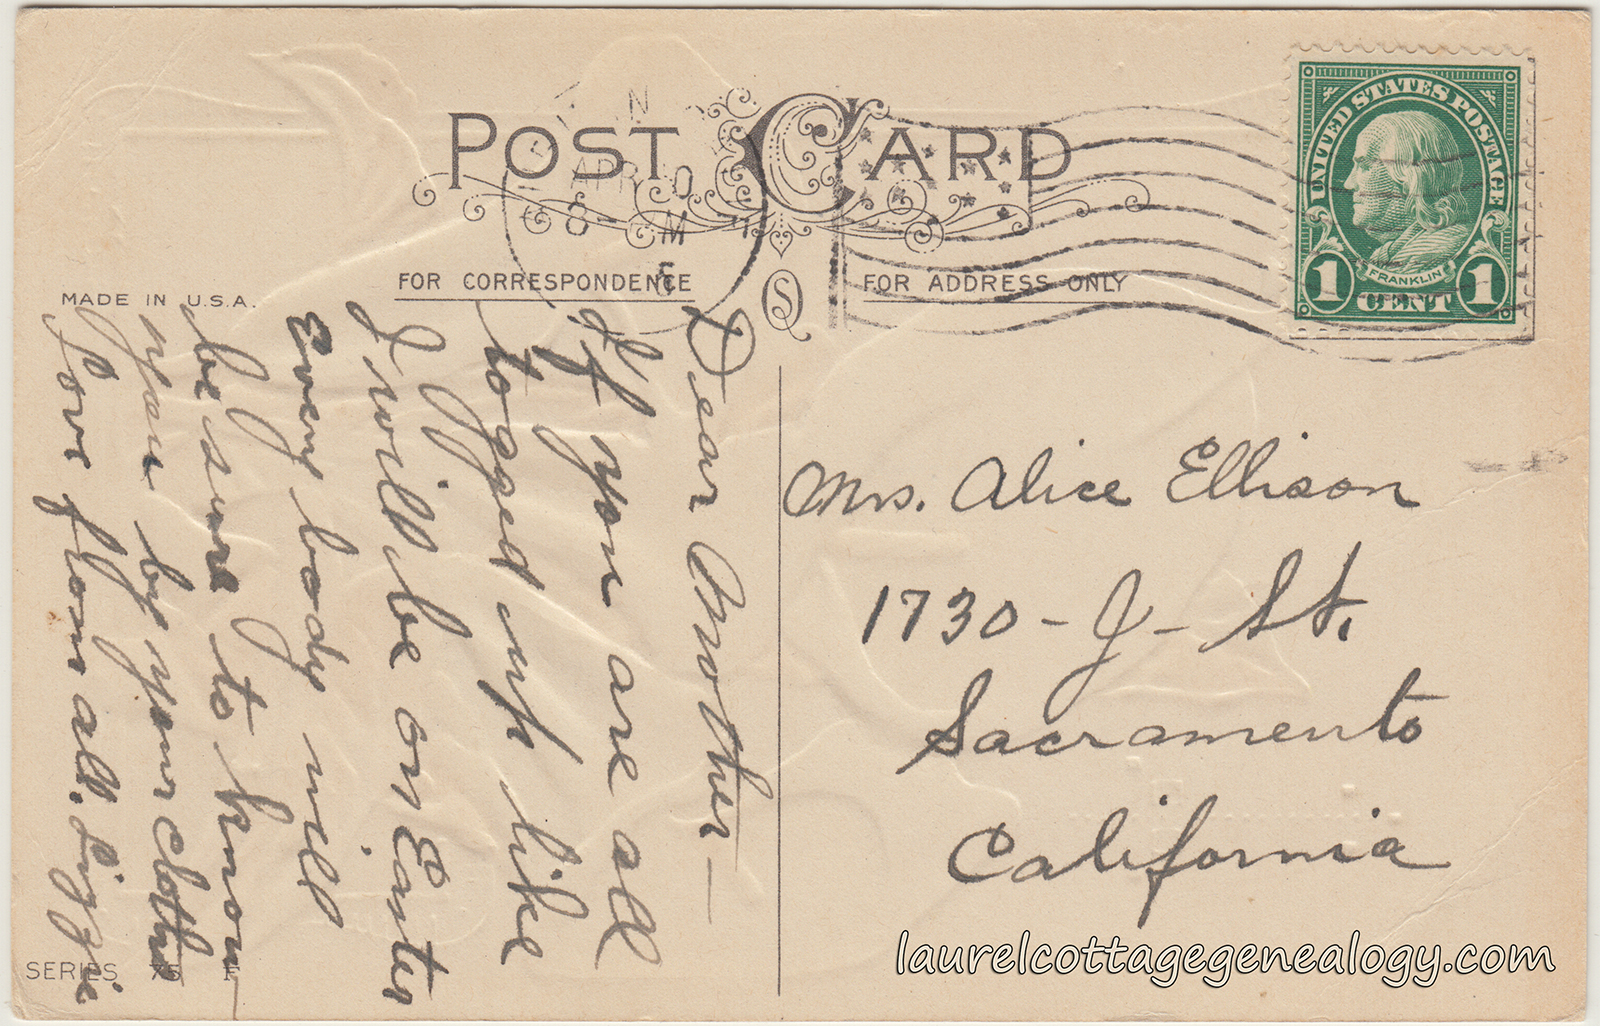 POST CARD
APR
8 M
FOR CORRESPONDENCE
FOR ADDRESS ONLY
MADE IN U.S.A.
UNITED STATES POSTAGE
FRANKLIN
1 CENT 1
Dear Mother —
If you are all
togged up like
I will be on Easter
Every body will
be sure to know
you by your clothes
Love from all. Lizzie
Mrs. Alice Ellison
1730 - J - St.
Sacramento
California
SERIES 75 F
laurelcottagegenealogy.com